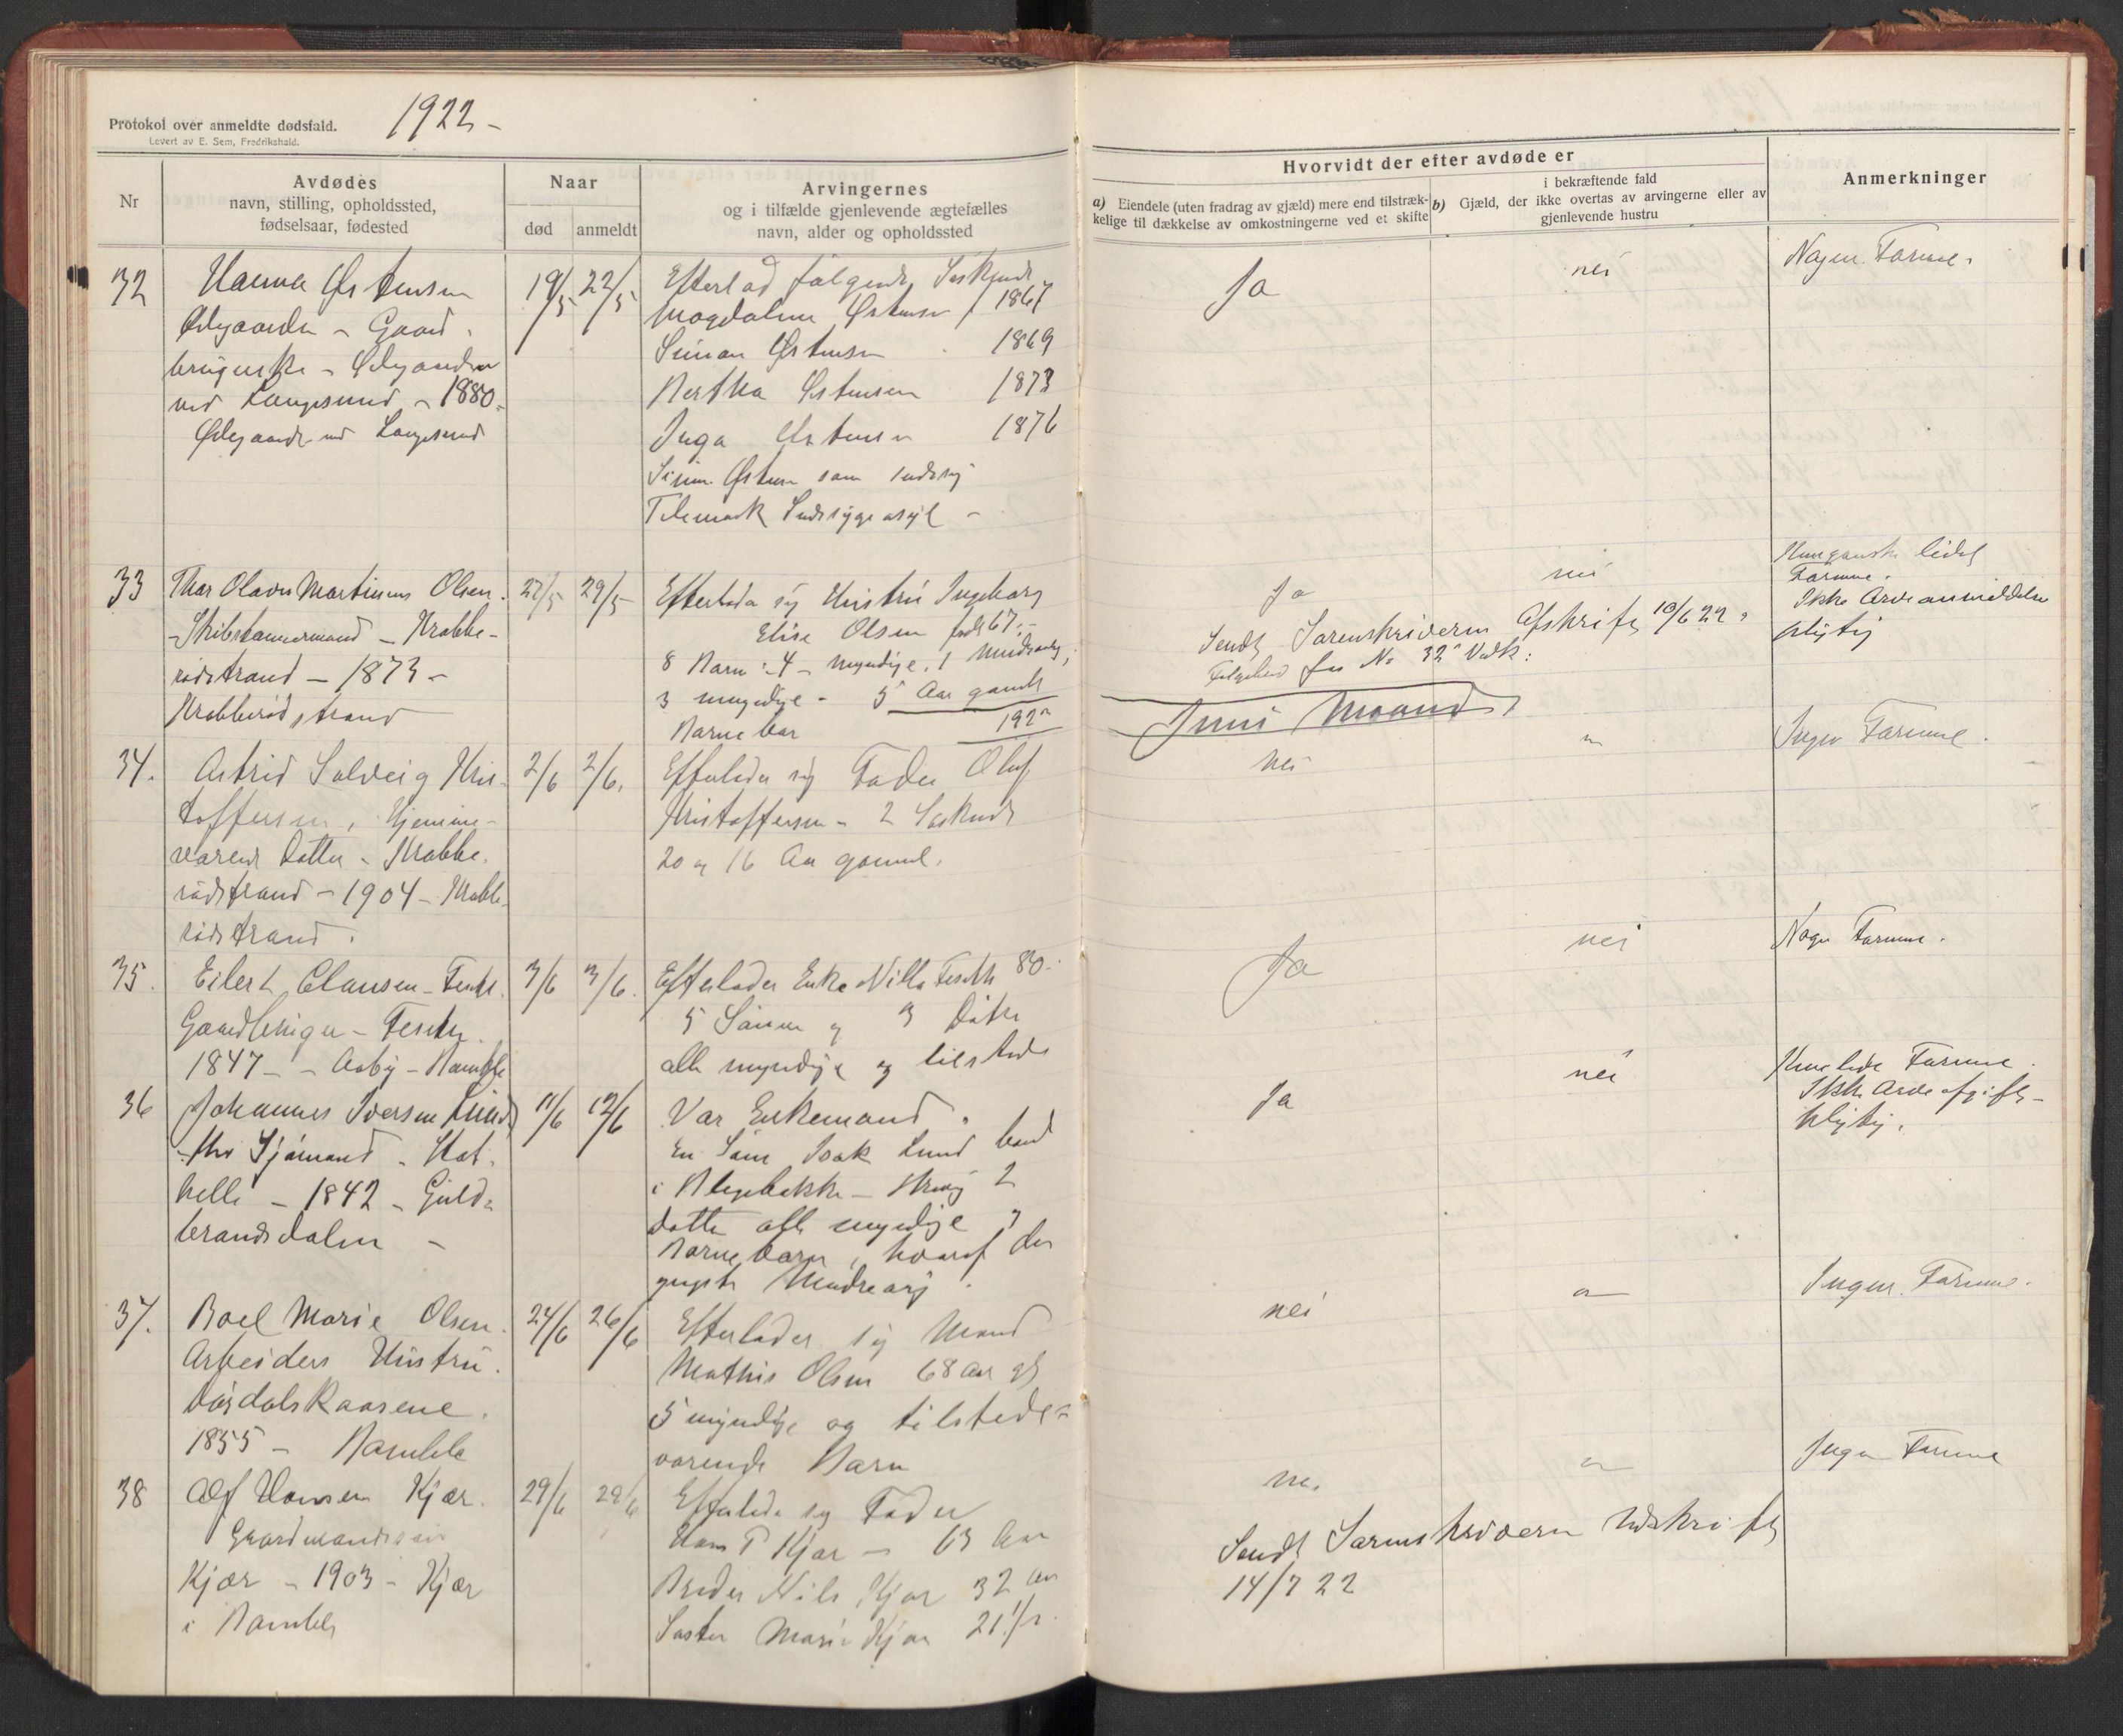 Protokol over anmeldte dødsfald.
Levert av E. Sem, Fredrikshald.
1922 -
Nr
Avdødes
navn, stilling, opholdssted,
fødselsaar, fødested
Naar
død
anmeldt
Arvingernes
og i tilfælde gjenlevende ægtefælles
navn, alder og opholdssted
Hvorvidt der efter avdøde er
a) Eiendele (uten fradrag av gjæld) mere end tilstræk-
kelige til dækkelse av omkostningerne ved et skifte
i bekræftende fald
b) Gjæld, der ikke overtas av arvingerne eller av
gjenlevende hustru
Anmerkninger
32
Hanna Østensen
Ødegaarden - Gaard-
brugerske - Ødegaarden
ved Langesund - 1880 -
Ødegaarden ved Langesund
19/5
22/5
Efterlod følgende Søskende
Magdalene Østensen f 1867
Simon Østensen 1869
Bertha Østensen 1873
Inga Østensen 1876
Simon Østensen som sindssyg
Telemark Sindssygeasyl -
Ja
nei
Nogen Formue.
33
Thor Olavus Martinius Olsen.
- Skibstømmermand - Krabbe-
rødstrand - 1873 -
Krabberødstrand
27/5
29/5
Efterlader sig Hustru Ingeborg
Elise Olsen født 67 -
8 Barn: 4 - myndige, 1 Mindreaarig,
3 umyndige - 5 Aar gamle
Barnebarn
1922
Ja
nei
Sendt Sorenskriveren Afskrift 10/6 22.
Følgebrev Jnr No 32
Kun ganske lidet
Formue.
Ikke Arveanmeldelse
pligtig
Juni Maaned
34.
Astrid Solveig Kris-
toffersen, Hjemme-
værende Datter - Krabbe-
rødstrand - 1904 - Krabbe-
rødstrand.
2/6
2/6.
Efterlader sig Fader Oluf
Kristoffersen - 2 Søskende
20 og 16 Aar gammel.
nei
"
Ingen Formue.
35.
Eilert Clausen - Feste.
Gaardbruger - Feste.
1847 - - Aaby - Bamble
3/6
3/6.
Efterlader Enke Nilla 80.
5 Sønner og 3 Døtre
alle myndige og tilstede
Ja
nei
Nogen Formue.
36
Johannes Iversen Lund
fhv Sjømand - Stat-
helle - 1842 - Guld-
brandsdalen -
11/6
12/6
Var Enkemand.
En Søn Isak Lund boende
i Blegebakke - Strang 2
Døttre alle myndige 3
Barnebarn, hvoraf den
yngste Mindreaarig.
Ja
nei
Kun lidt Formue.
Ikke Arveafgifts-
pligtig.
37.
Boel Marie Olsen.
Arbeiders Hustru.
1855 - Bamble
24/6
26/6
Efterlader sig Mand
Mathis Olsen 68 Aar gl
5 myndige og tilstede-
værende Barn
nei
"
Ingen Formue.
38
Alf Hansen Kjær.
Gaardmandssøn
Kjær - 1903 - Kjær
i Bamble
29/6
29/6
Efterlader sig Fader
Hans P Kjær - 63 Aar
Broder Nils Kjær 32 Aar
Søster Marie Kjær 21 1/2.
nei
"
Ingen Formue
Sendt Sorenskriveren Udskrift
14/7 22